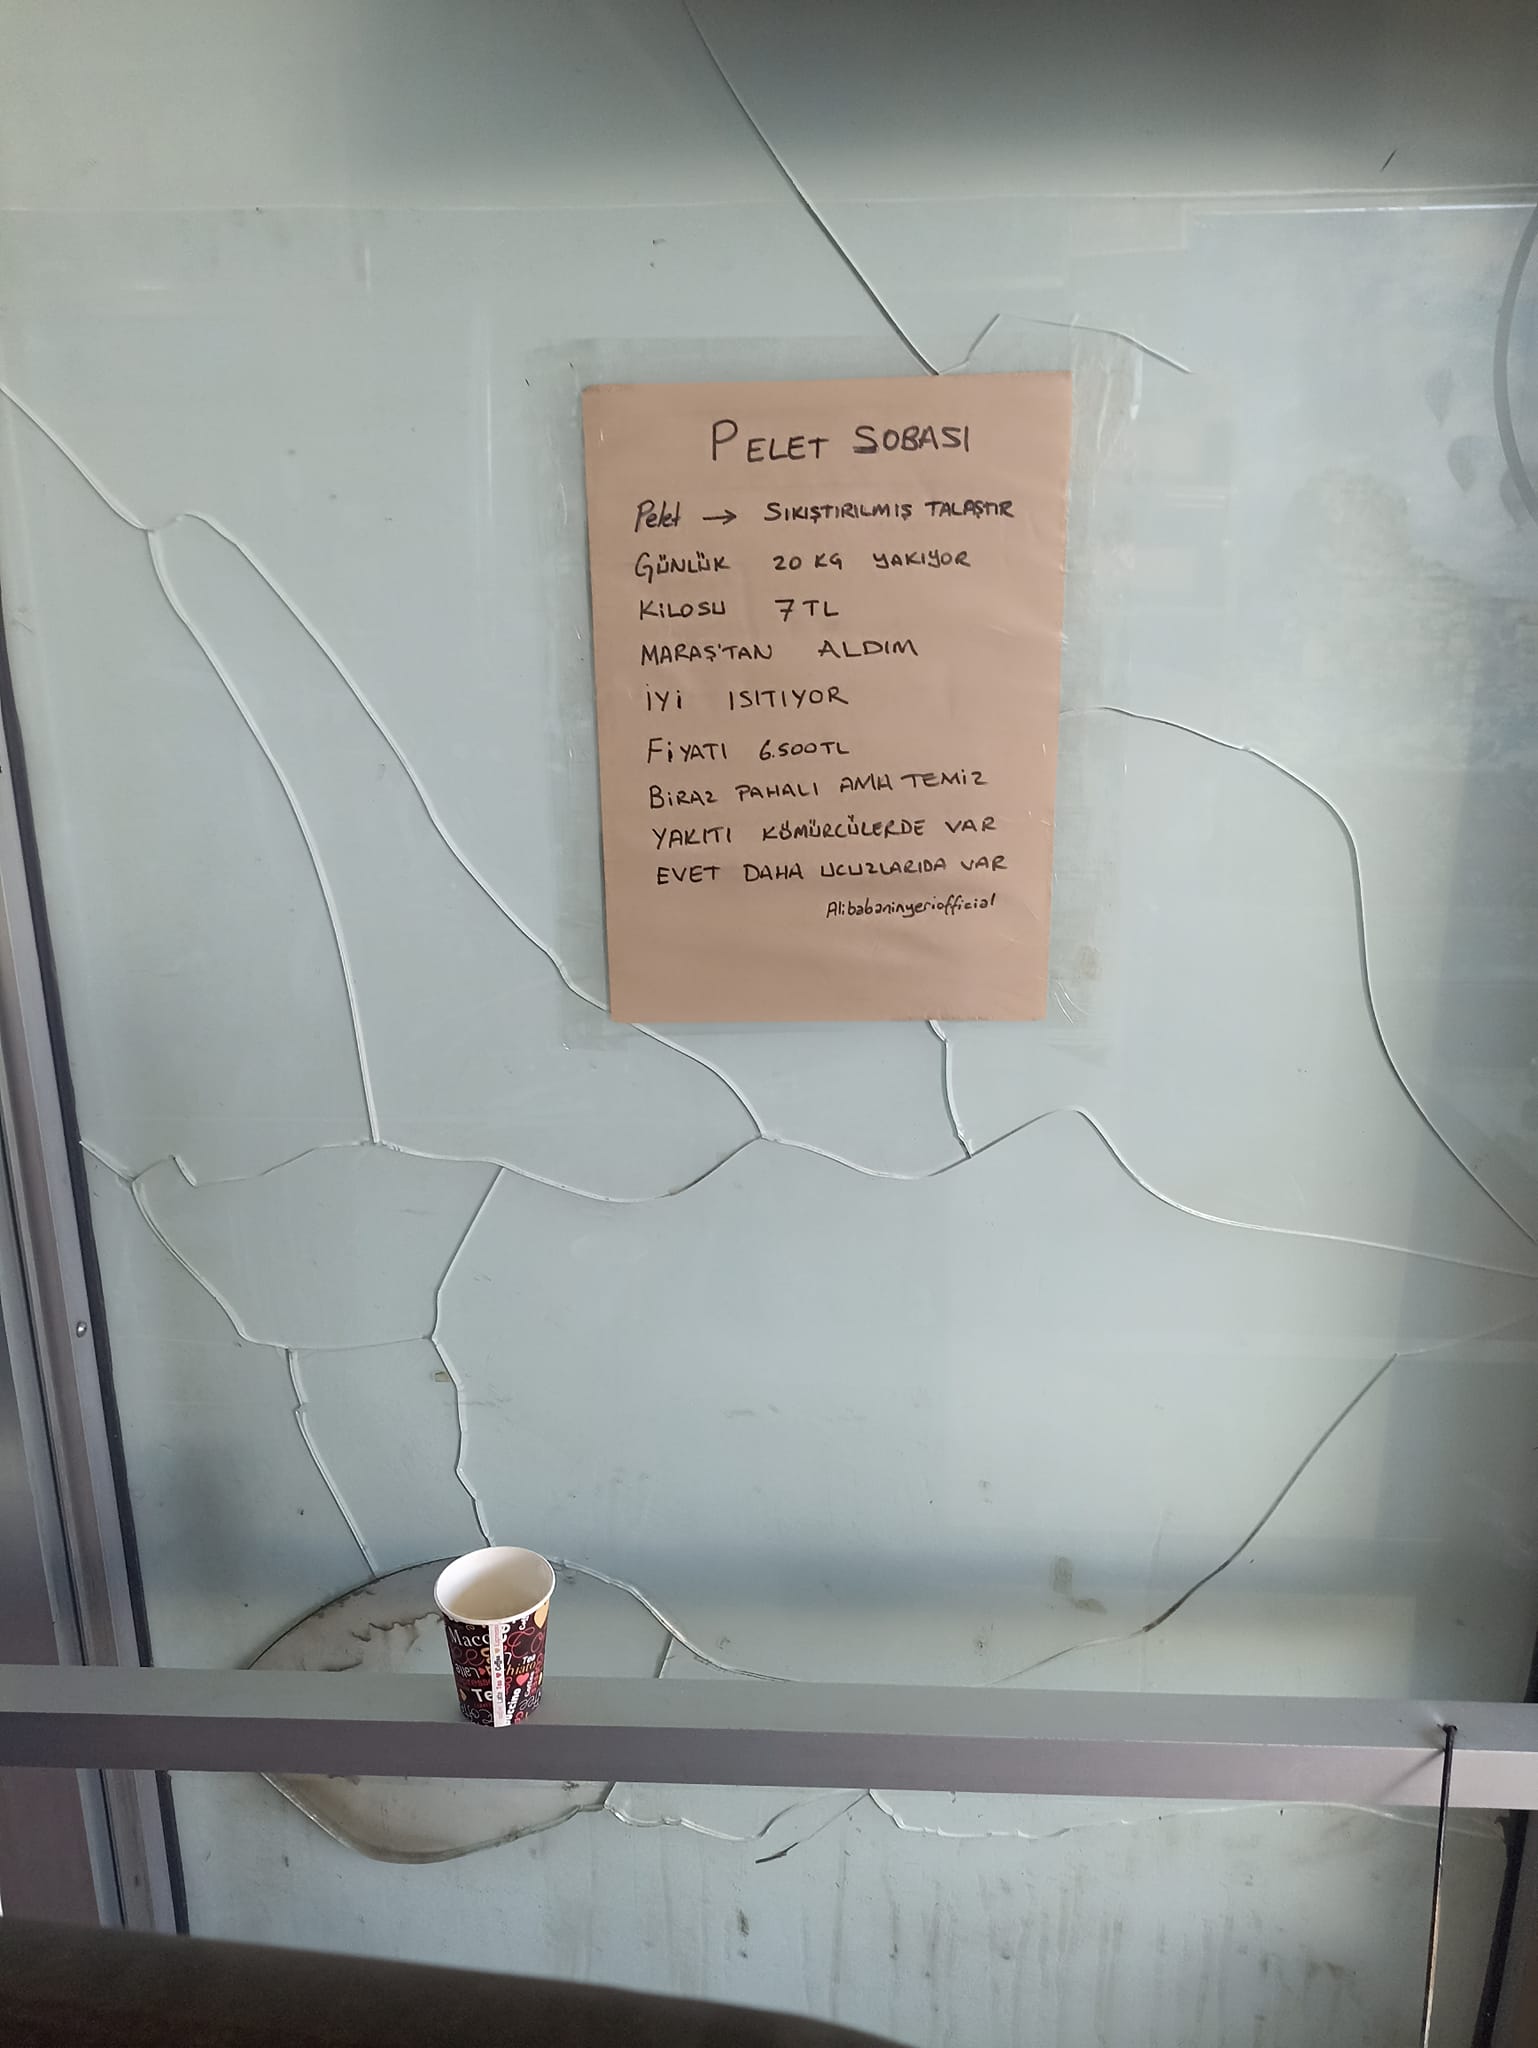 PELET SOBASI
Pelet → SIKIŞTIRILMIŞ TALAŞTIR
GÜNLÜK 20 KG YAKIYOR
KİLOSU 7 TL
MARAŞ'TAN ALDIM
İYİ ISITIYOR
FİYATI 6.500TL
BİRAZ PAHALI AMA TEMİZ
YAKITI KÖMÜRCÜLERDE VAR
EVET DAHA UCUZLARIDA VAR
Alibabaninyeriofficial
Tea
Coffee